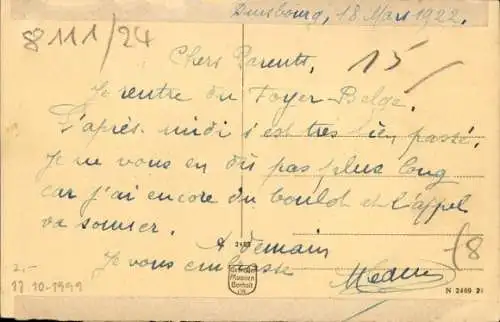 Duisbourg, 18 Mars 1922.
8111/24
15/
Chers Parents,
Je rentre du Foyer-Belge.
L'après-midi s'est très bien passé.
Je ne vous en dis pas plus long
car j'ai encore du boulot et l'appel
va sonner.
A demain
Je vous embrasse
(8
2.-
17-10-1999
N 2469 21